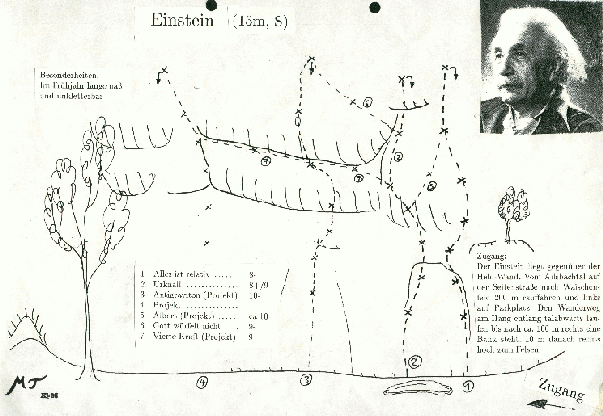 Einstein (15m, S)
Besonderheiten:
Im Frühjahr lange naß
und unkletterbar
1 Alles ist relativ ...... 8-
2 Urknall ............... 8+/9
3 Antigraviton (Projekt) 10-
4 Projekt
5 (Projekt) ...... ca 10
6 Gott würfelt nicht 9-
7 Vierte Kraft (Projekt) 9
Zugang:
Der Einstein liegt gegenüber der
Wand. Vom Aubachtal auf
der Seitenstraße nach
200 m und links
auf Parkplatz. Den Wanderweg
am Hang entlang talabwärts
bis nach ca. 100 m rechts eine
Bank steht. 10 m danach rechts
hoch zum Felsen.
4 3 2 1
MJ
Zugang